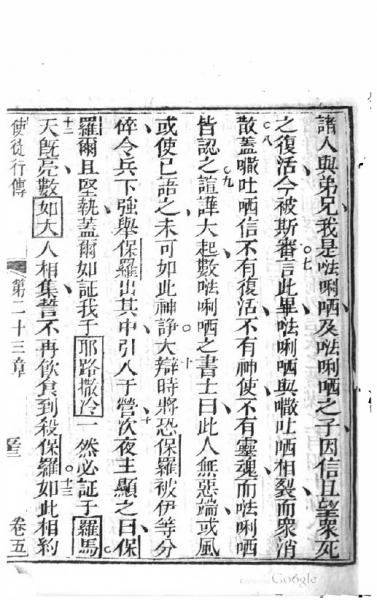 諸人與弟兄我是𠵽唎哂及𠵽唎哂之子因信且望衆死
之復活今被斯審七言此畢𠵽唎哂與吐哂相裂而衆消
散八蓋吐哂信不有復活不有神使不有靈魂而𠵽唎哂
皆認之九諠譁大起數𠵽唎哂之書士曰此人無惡端或風
或使已語之未可如此神諍十大辯時將恐保羅被伊等分
碎令兵下強舉保羅出其中引入于營十一次夜主顯之曰保
羅爾且堅執蓋爾如証我于耶路撒冷一然必証于羅馬
十二天既亮數如大人相集誓不再飲食到殺保羅十三如此相約
使徒行傳 第二十三章 卷五
Google